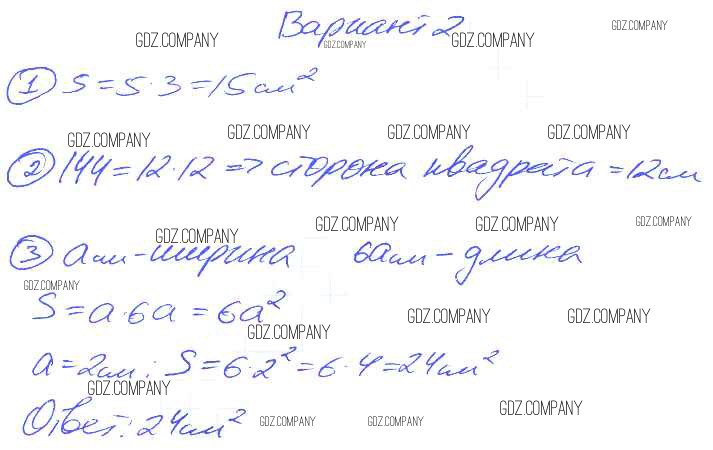 Вариант 2
GDZ.COMPANY GDZ.COMPANY GDZ.COMPANY GDZ.COMPANY
① S = 5·3 = 15 см²
GDZ.COMPANY GDZ.COMPANY GDZ.COMPANY GDZ.COMPANY
② 144 = 12·12 => сторона квадрата = 12 см
GDZ.COMPANY GDZ.COMPANY GDZ.COMPANY GDZ.COMPANY
③ a см - ширина 6a см - длина
GDZ.COMPANY
S = a·6a = 6a²
GDZ.COMPANY GDZ.COMPANY GDZ.COMPANY
a = 2 см: S = 6·2² = 6·4 = 24 см²
GDZ.COMPANY
Ответ: 24 см²
GDZ.COMPANY GDZ.COMPANY GDZ.COMPANY